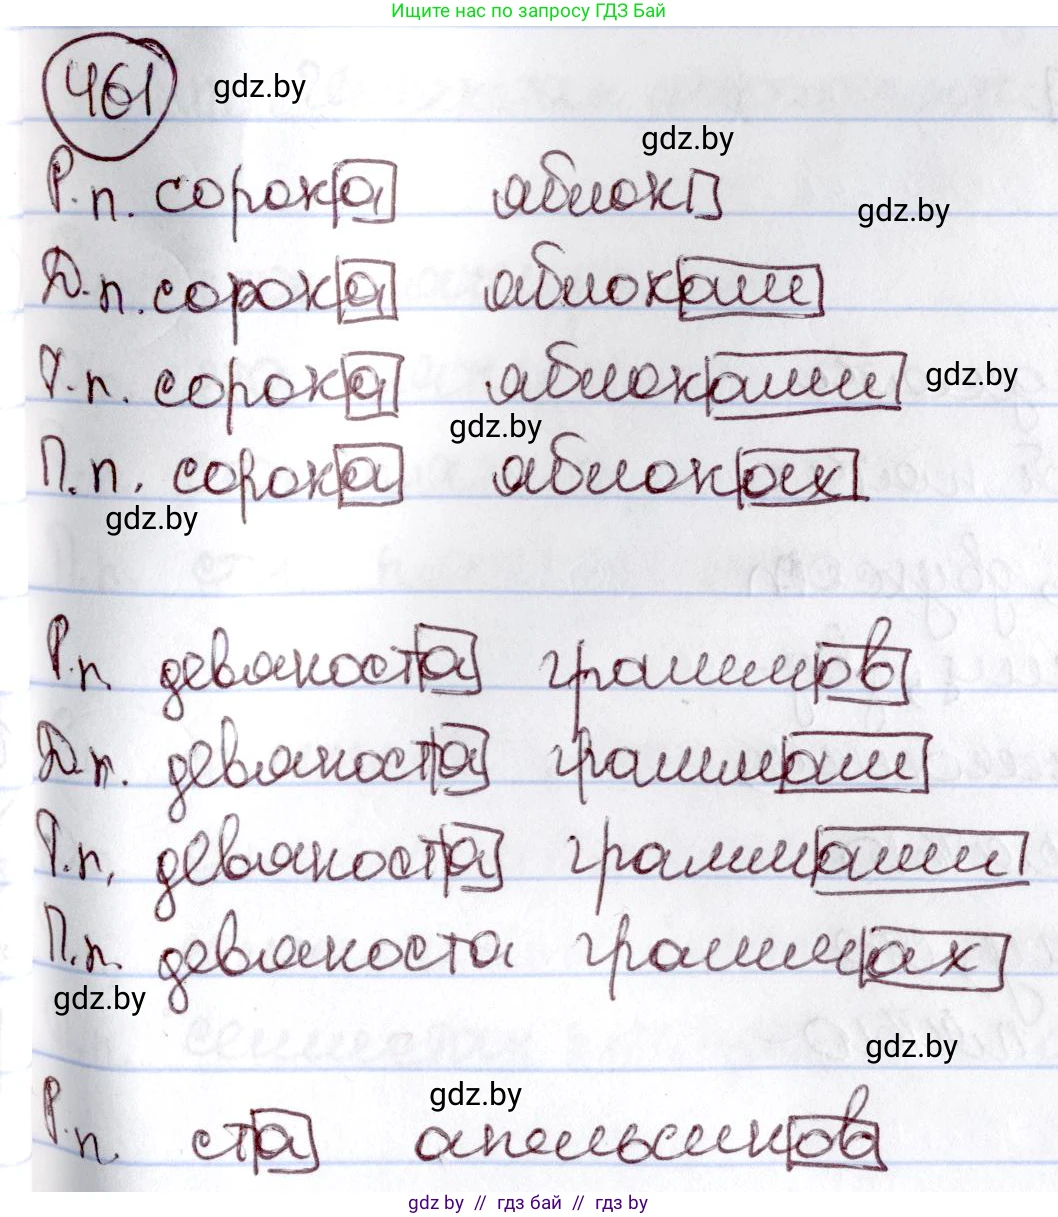 Ищите нас по запросу ГДЗ Бай
461 gdz.by
gdz.by
Р.п. сорока яблок
gdz.by
Д.п. сорока яблокам
Т.п. сорока яблоками gdz.by
gdz.by
П.п. сорока яблоках
gdz.by
Р.п девяноста граммов
Д.п. девяноста граммам
Т.п. девяноста граммами
П.п. девяноста граммах
gdz.by
gdz.by
gdz.by
Р.п ста апельсинов
gdz by // гдз бай // гдз by